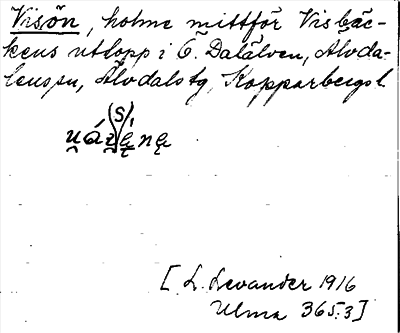 Visön, holme mittför Visbäc-
kens utlopp i Ö. Dalälven, Älvda-
lens sn, Älvdals tg, Kopparbergs l.
[L. Levander 1916
Ulma 365:3]